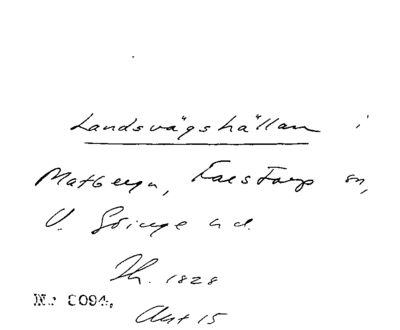 Landsvägshällan i
Matberga, Farstorp sn,
V. Göinge hd.
Th. 1828
N.: 5094,
Akt 15